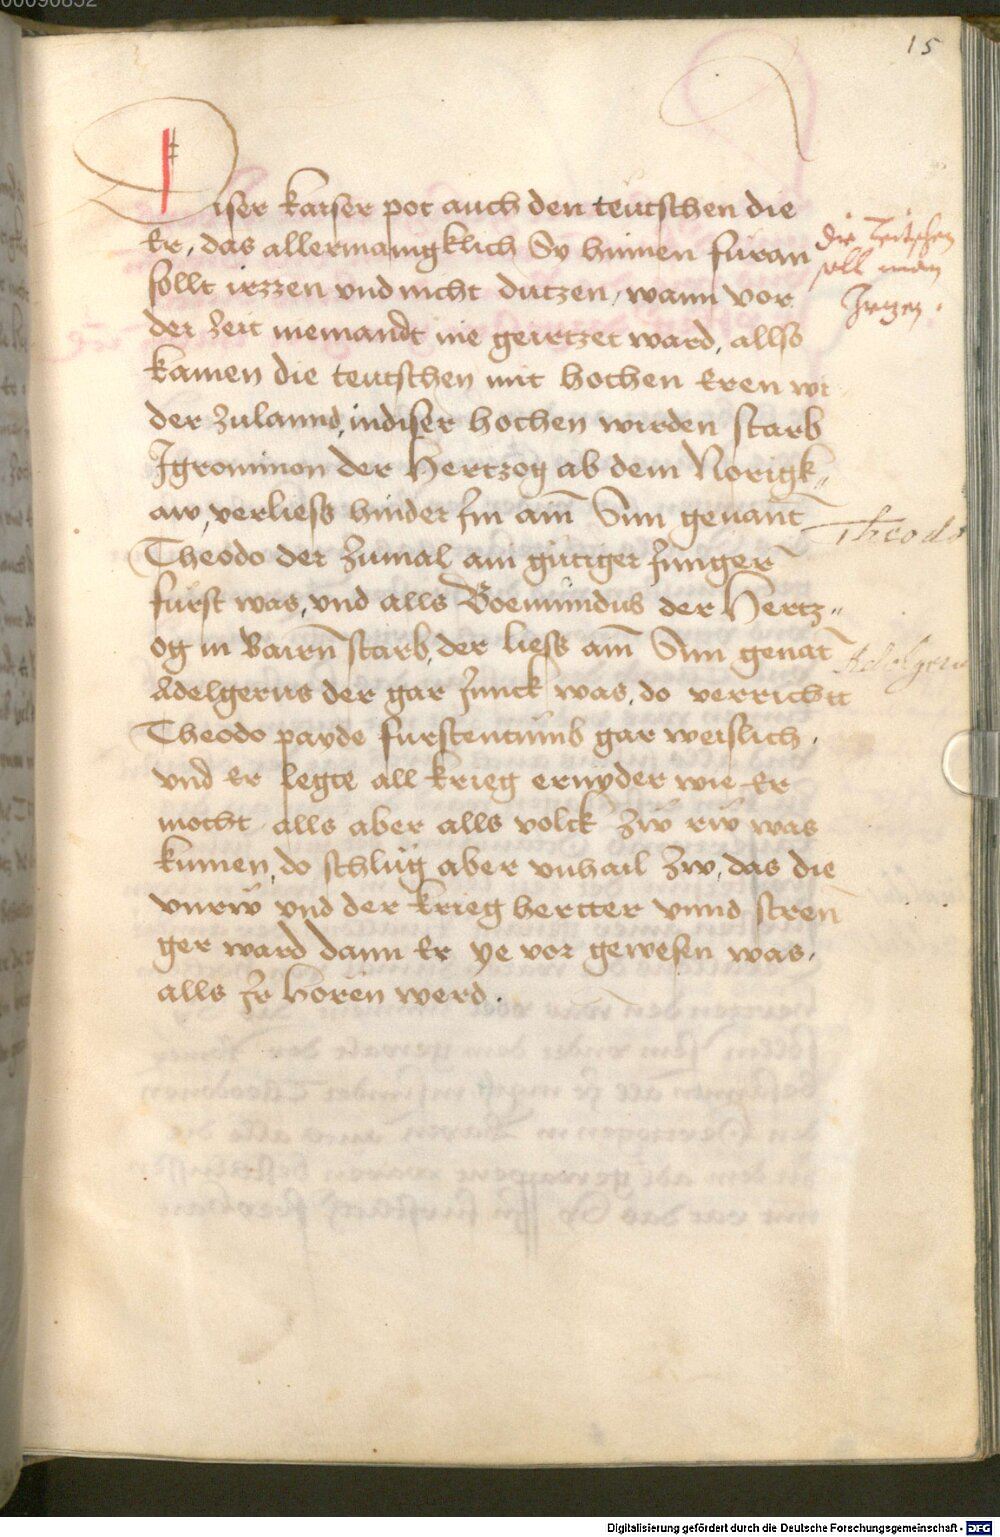 15
Diser kaiser pot auch den teutschen die
Er, das allermaingklich Sy hinnen furan
sollt irzzen vnd nicht dutzen, wann vor
der Zeit niemandt nie geirtzet ward, allso
kamen die teutschen mit hochen Eren wi
der Zulannd, in diser hochen wirden starb
Igrominon der Hertzog ab dem Norigk„
aw, verliess hinder Im ain Sun genant
Theodo der Zumal ain gutiger Junger
furst was, vnd alls Boemundus der Hertz„
og in Bairn starb, der liess ain Sun genat
Adelgerus der gar Junck was, do verricht
Theodo payde furstentumb gar weislich.
vnd Er legte all krieg ernyder wie Er
mocht alls aber alls volck Zw rw was
kumen, do schlug aber vnhail Zw, das die
vnrw vnd der krieg hertter vnnd stren
ger ward dann Er ye vor gewesen was.
alls Ir horen werd.
die Teitschen
soll man
Irtzen.
Theodo
Adelgerus
Digitalisierung gefördert durch die Deutsche Forschungsgemeinschaft - DFG